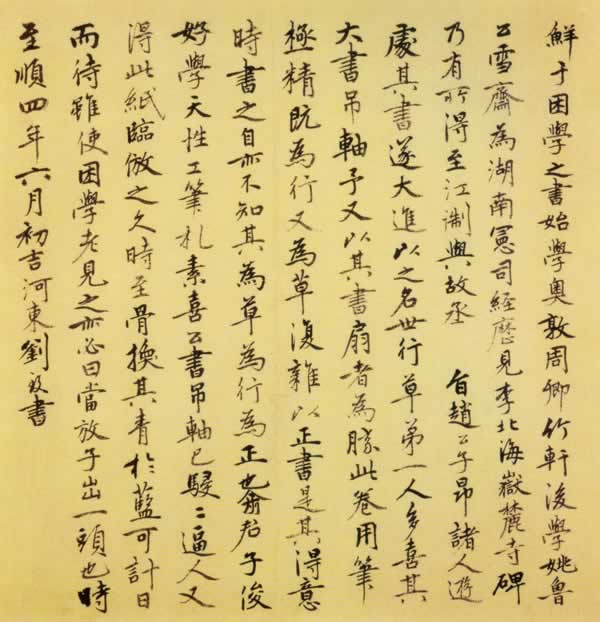 鮮于困學之書始學奥敦周卿竹軒後學姚魯
公雪齋為湖南憲司經歷見李北海嶽麓寺碑
乃有所得至江淛與故丞 旨趙公子昂諸人遊
處其書遂大進以之名世行草第一人多喜其
大書吊軸予又以其書扇者為勝此卷用筆
極精既為行又為草復雜以正書是其得意
時書之自亦不知其為草為行為正也喬君子俊
好學天性工筆札素喜公書吊軸已駸二逼人又
得此紙臨倣之久時至骨換其青於藍可計日
而待雖使困學老見之亦必曰當放子出一頭也時
至順四年六月初吉河東劉致書